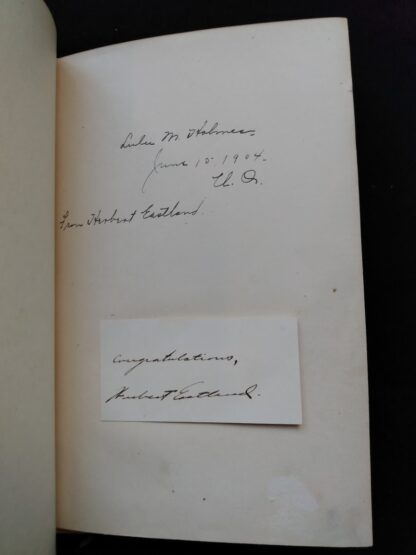 Lulu M. Holmes,
June 15 1904.
From Herbert Eastland.
Congratulations,
Herbert Eastland.